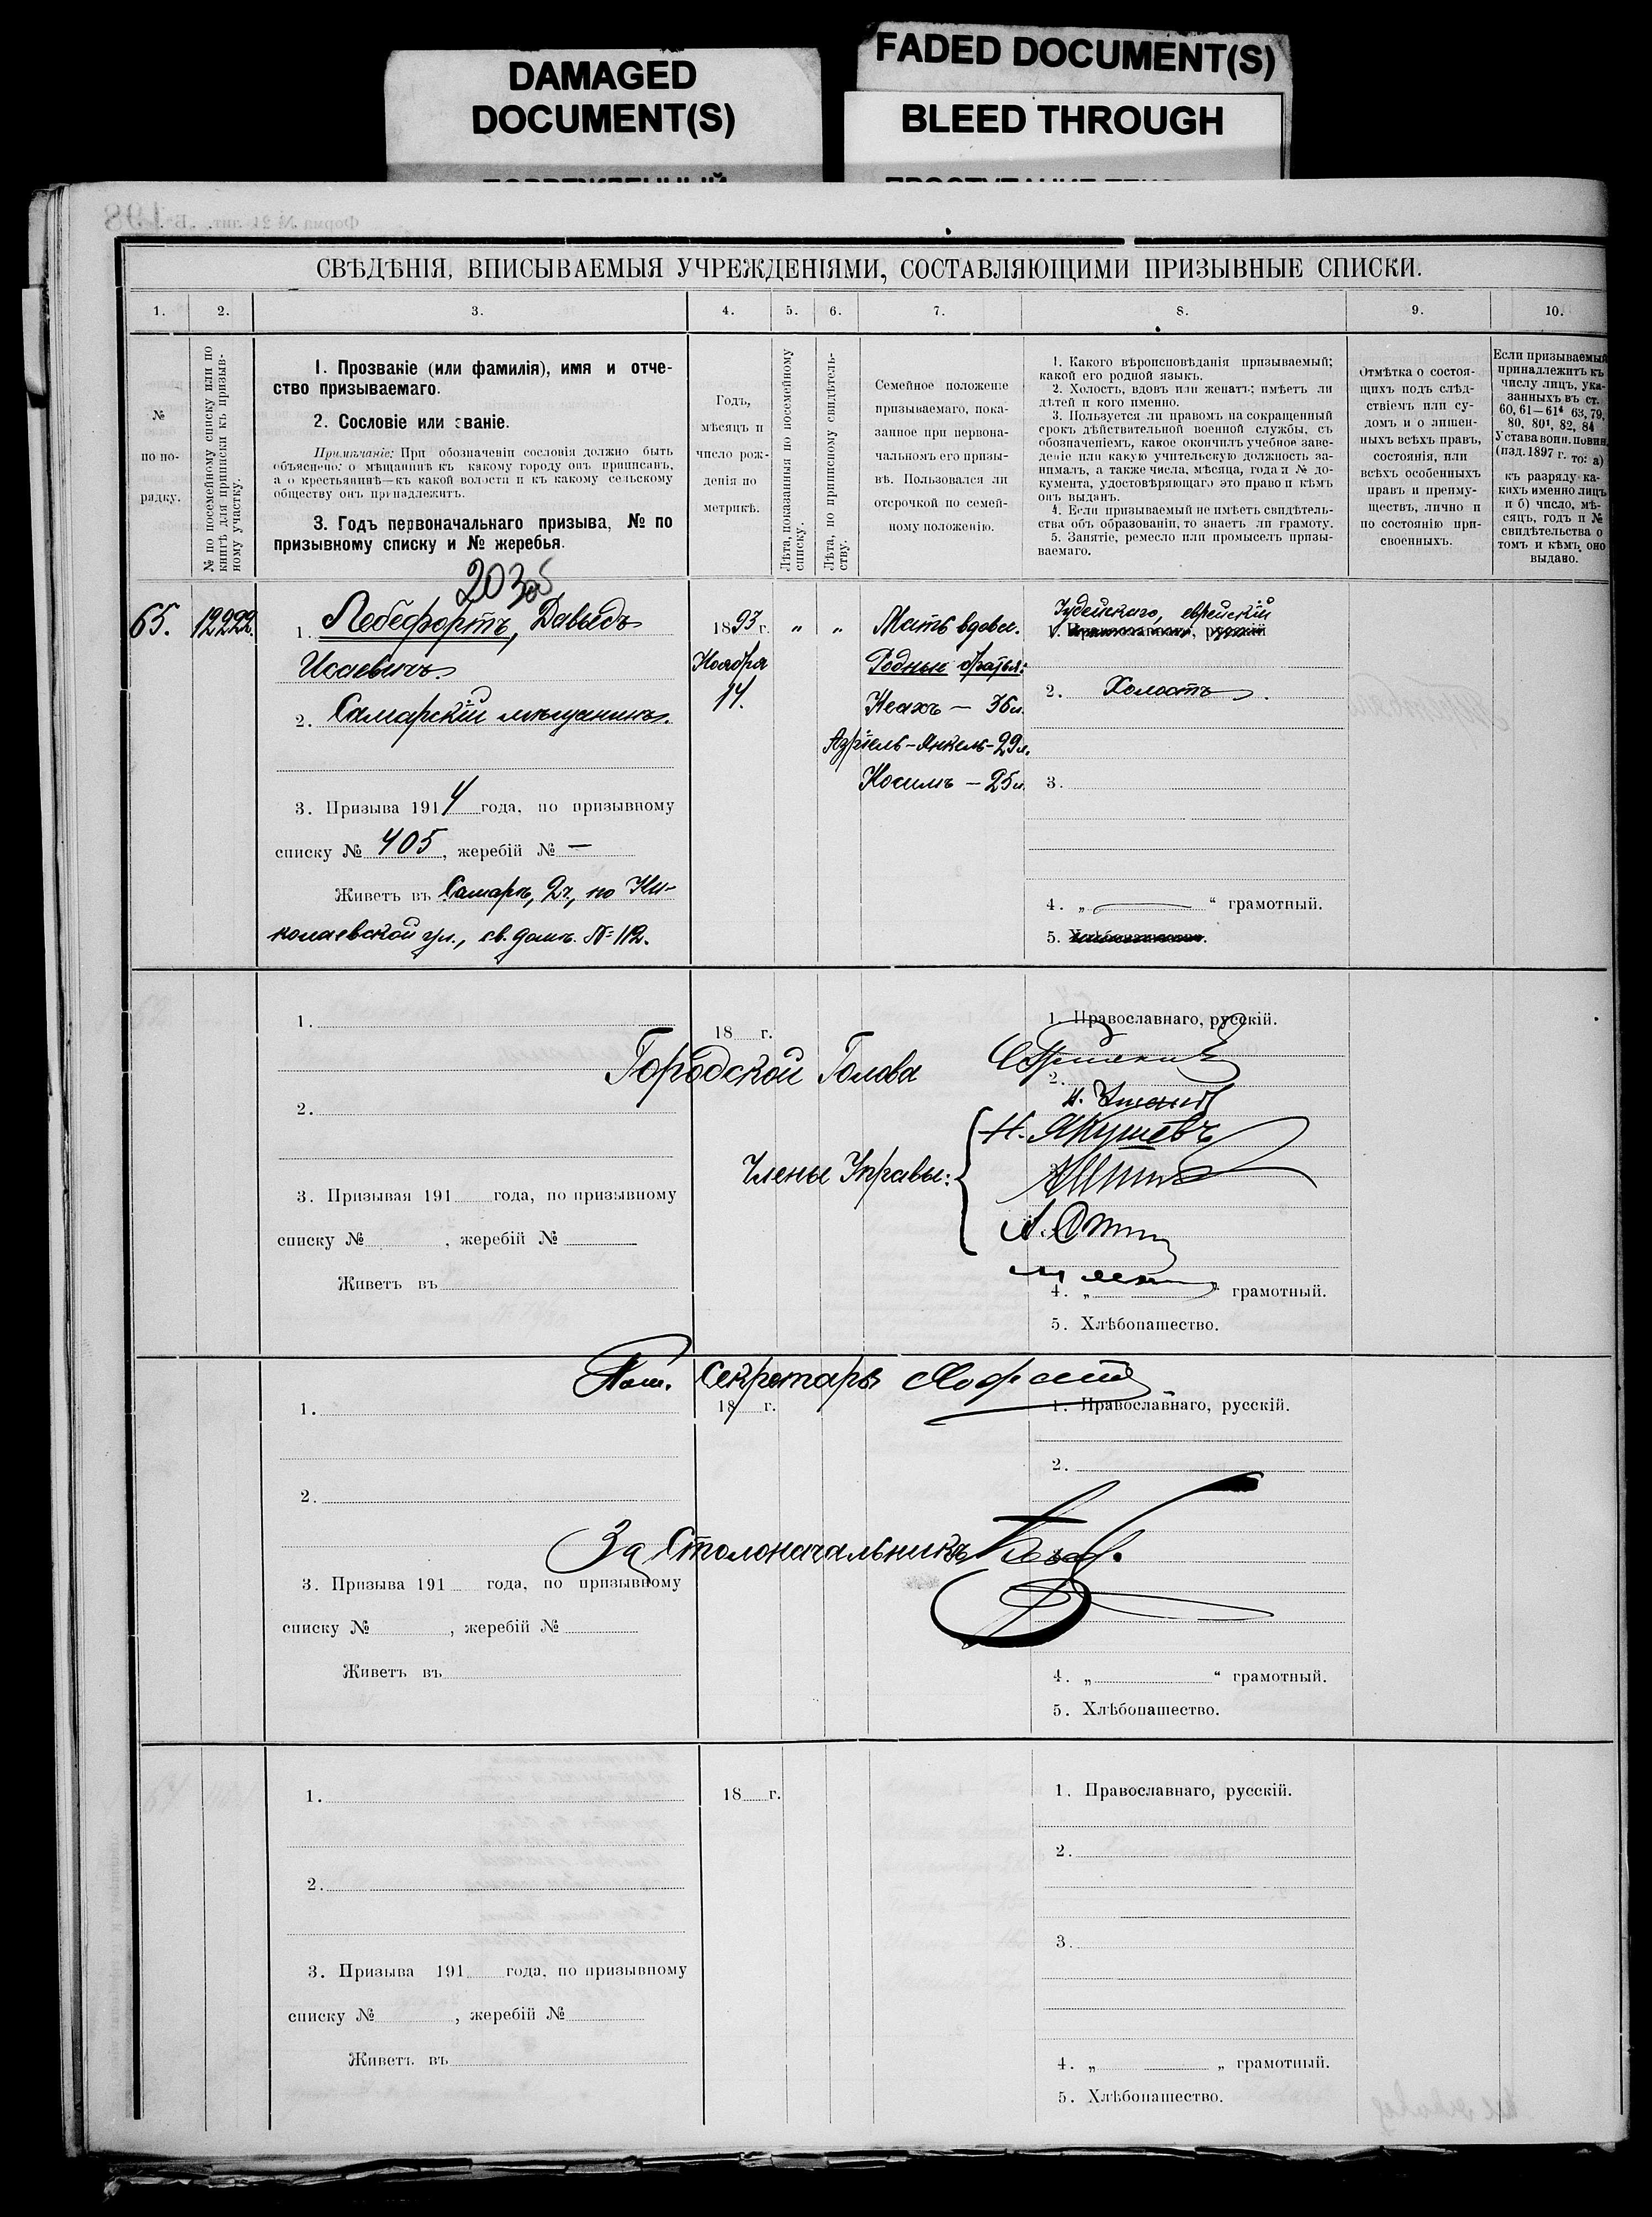 DAMAGED
DOCUMENT(S)
FADED DOCUMENT(S)
BLEED THROUGH
СВѢДѢНІЯ, ВПИСЫВАЕМЫЯ УЧРЕЖДЕНІЯМИ, СОСТАВЛЯЮЩИМИ ПРИЗЫВНЫЕ СПИСКИ.
1. 2. 3. 4. 5. 6. 7. 8. 9. 10.
№
по по-
рядку.
№ по посемейному списку или по
книгѣ для приписки къ призыв-
ному участку.
1. Прозваніе (или фамилія), имя и отче-
ство призываемаго.
2. Сословіе или званіе.
Примѣчаніе: При обозначеніи сословія должно быть
объяснено: о мѣщанинѣ къ какому городу онъ приписанъ,
а о крестьянинѣ—къ какой волости и къ какому сельскому
обществу онъ принадлежитъ.
3. Годъ первоначальнаго призыва, № по
призывному списку и № жеребья.
Годъ,
мѣсяцъ и
число рож-
денія по
метрикѣ.
Лѣта, показанныя по посемейному
списку.
Лѣта, по приписному свидѣтель-
ству.
Семейное положеніе
призываемаго, пока-
занное при первона-
чальномъ его призы-
вѣ. Пользовался ли
отсрочкой по семей-
ному положенію.
1. Какого вѣроисповѣданія призываемый;
какой его родной языкъ.
2. Холостъ, вдовъ или женатъ; имѣетъ ли
дѣтей и кого именно.
3. Пользуется ли правомъ на сокращенный
срокъ дѣйствительной военной службы, съ
обозначеніемъ, какое окончилъ учебное заве-
деніе или какую учительскую должность за-
нималъ, а также числа, мѣсяца, года и № до-
кумента, удостовѣряющаго это право и кѣмъ
онъ выданъ.
4. Если призываемый не имѣетъ свидѣтель-
ства объ образованіи, то знаетъ ли грамоту.
5. Занятіе, ремесло или промыселъ призы-
ваемаго.
Отмѣтка о состоя-
щихъ подъ слѣд-
ствіемъ или су-
домъ и о лишен-
ныхъ всѣхъ правъ,
состоянія, или
всѣхъ особенныхъ
правъ и преиму-
ществъ, лично и
по состоянію при-
своенныхъ.
Если призываемый
принадлежитъ къ
числу лицъ, ука-
занныхъ въ ст.
60, 61—61⁴ 63, 79,
80, 80¹, 82, 84
Устава воин. повин.
(изд. 1897 г. то: а)
къ разряду ка-
кихъ именно лицъ
и б) число, мѣ-
сяцъ, годъ и №
свидѣтельства о
томъ и кѣмъ оно
выдано.
65. 12222.
1. Лебефортъ, Давыдъ
Исаевичъ.
2. Самарскій мѣщанинъ.
3. Призыва 1914 года, по призывному
списку № 405, жеребій № —
Живетъ въ Самарѣ, 2ч., по Ни-
колаевской ул., св. домъ № 112.
1893 г.
Ноября
14.
„ „
Мать вдова.
Родные братья:
Исахъ — 36 л.
Азріель-Янкель-29 л.
Носимъ — 25 л.
Іудейскаго, еврейскій
1. Православнаго, русскій
2. Холостъ.
3.
4. „ “ грамотный.
5. Хлѣбопашество.
1.
2.
3. Призывая 191 года, по призывному
списку № , жеребій №
Живетъ въ
18 г.
1. Православнаго, русскій.
2.
Городской Голова
Члены Управы:
Н. Якушевъ
4. „ “ грамотный.
5. Хлѣбопашество.
Пом. Секретаря
1.
18 г.
1. Православнаго, русскій.
2.
2.
За Столоначальникъ
3. Призыва 191 года, по призывному
списку № , жеребій №
Живетъ въ
4. „ “ грамотный.
5. Хлѣбопашество.
1.
18 г.
1. Православнаго, русскій.
2.
2.
3.
3. Призыва 191 года, по призывному
списку № , жеребій №
Живетъ въ
4. „ „ грамотный.
5. Хлѣбопашество.